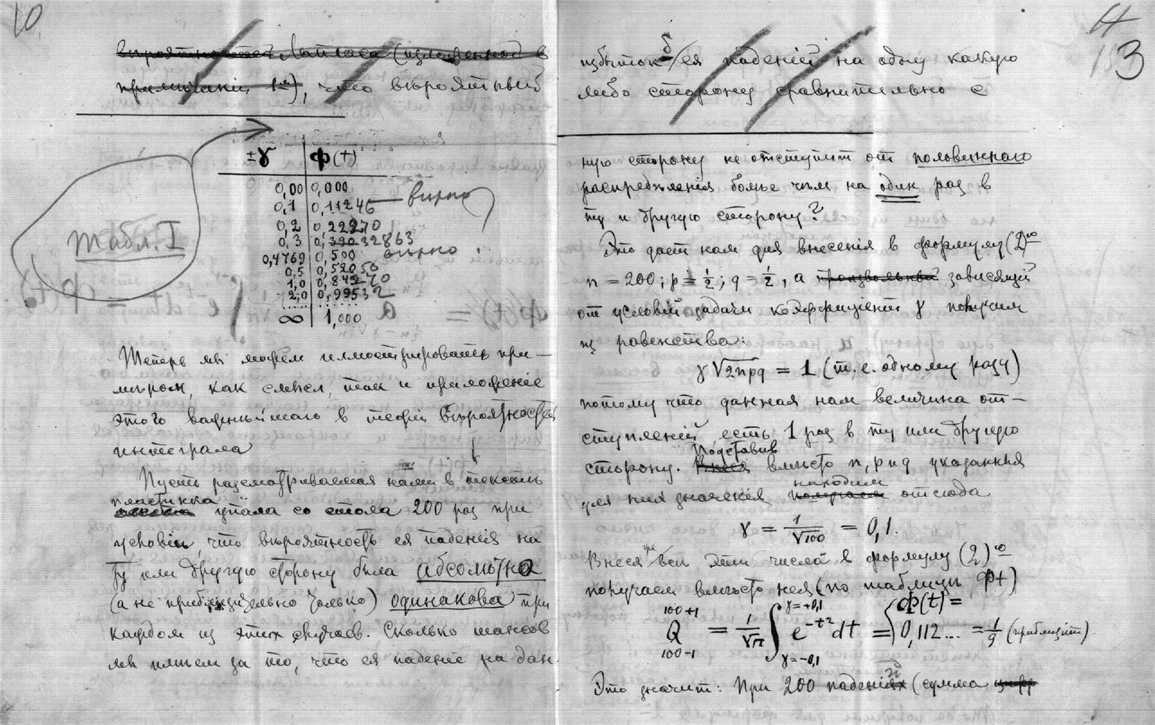 10.
вѣроятностей Лапласа (изложенной в
примѣчаніи 12), что вѣроятный
Табл. I
±γ Ф(t)
0,00 0,000
0,1 0,11246 — вѣрно
0,2 0,22270
0,3 0,32863
0,4769 0,500 вѣрно
0,5 0,52050
1,0 0,84270
2,0 0,99532
∞ 1,000
Теперь мы можем иллюстрировать при-
мѣром, как смысл, так и приложеніе
этого важнѣйшаго в теоріи вѣроятностей
интеграла
Пусть разсматриваемая нами в
пластинка упала со стола 200 раз при
условіи, что вѣроятность ея паденія на
ту или другую сторону была абсолютно
(а не приблизительно только) одинакова при
каждом из этих случаев. Сколько шансов
мы имѣем за то, что ея паденіе на дан-
4
13
избыток ея паденій на одну какую
либо сторону сравнительно с
ную сторону не отступит от половиннаго
распредѣленія болѣе чѣм на один раз в
ту и другую сторону?
Это дает нам для внесенія в формулу (2)ю
n = 200; p = ½; q = ½, а произвольный зависящій
от условій задачи коэффиціент γ получим
из равенства:
γ√2npq = 1 (т.е. одному разу)
потому что данная нам величина от-
ступленій есть 1 раз в ту или другую
сторону. Подставив вмѣсто n, p и q указанныя
для них значенія находим отсюда
γ = 1/√100 = 0,1.
Внеся всѣ эти числа в формулу (2)ю
получаем вмѣсто нея (по таблицѣ Фt)
Q 100+1 100-1 = 1/√π ∫ γ=+0,1 γ=-0,1 e^-t² dt = Ф(t) = 0,112... = 1/9 (приблизит)
Это значит: При 200 паденій (сумма